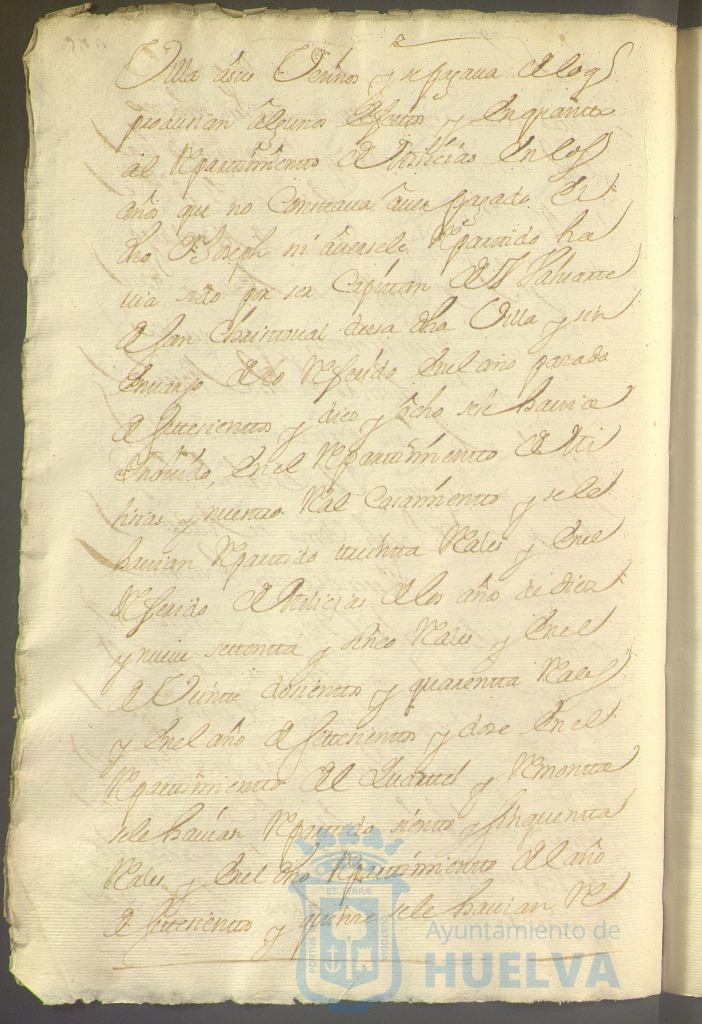 Villa â sus Vezinos y se pagaua de los q̃
produsian âlgunos efectos y en quanto
âl Repartimiento de Milicias en los
años que no Constaua âuer pagado el
dho Dn Joseph ni âuersele Repartido ha
uia sido por ser Capitan del Valuarte
de San Christoual desa dha Villa y sin
embargo de lo Referido en el año pasado
de settesientos y diez y ôcho se le hauia
en el Repartimiento de Mi
lisias y nuestro Real Casamiento y se le
hauian Repartido treinta Reales y en el
Referido de Milicias de los año de diez
y nueve settenta y sinco Reales y en el
de Veinte dosientos y quarenta Reales
y en el año de settesientos y doze en el
Repartimiento del Quartel y Remonta
se le hauian Repartido siento y sinquenta
Reales y en el dho Repartimiento del año
de settesientos y quinze se le hauian Re
PORTUS
ET TERRÆ
CUSTODIA
Ayuntamiento de
HUELVA